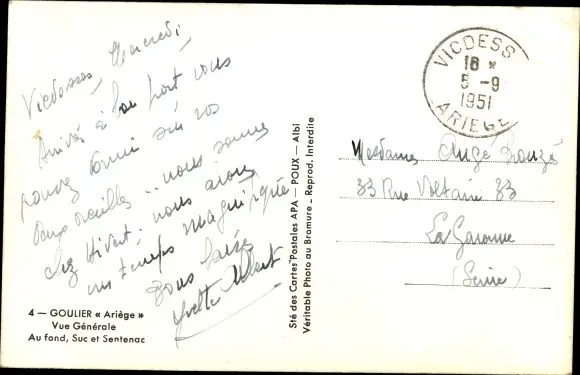 Vicdessos, Mercredi
Arrivés à bon port vous
pouvez dormir sur vos
deux oreilles .. nous sommes
chez Hivert; nous avons
un temps magnifique
Bons baisers
Yvette
4 — GOULIER « Ariège »
Vue Générale
Au fond, Suc et Sentenac
Sté des Cartes Postales APA — POUX — Albi
Véritable Photo au Bromure _ Reprod. Interdite
VICDESS
18 *
5 -9
1951
ARIEGE
Mesdames
33 Rue Voltaire 33
La Garenne
(Seine)